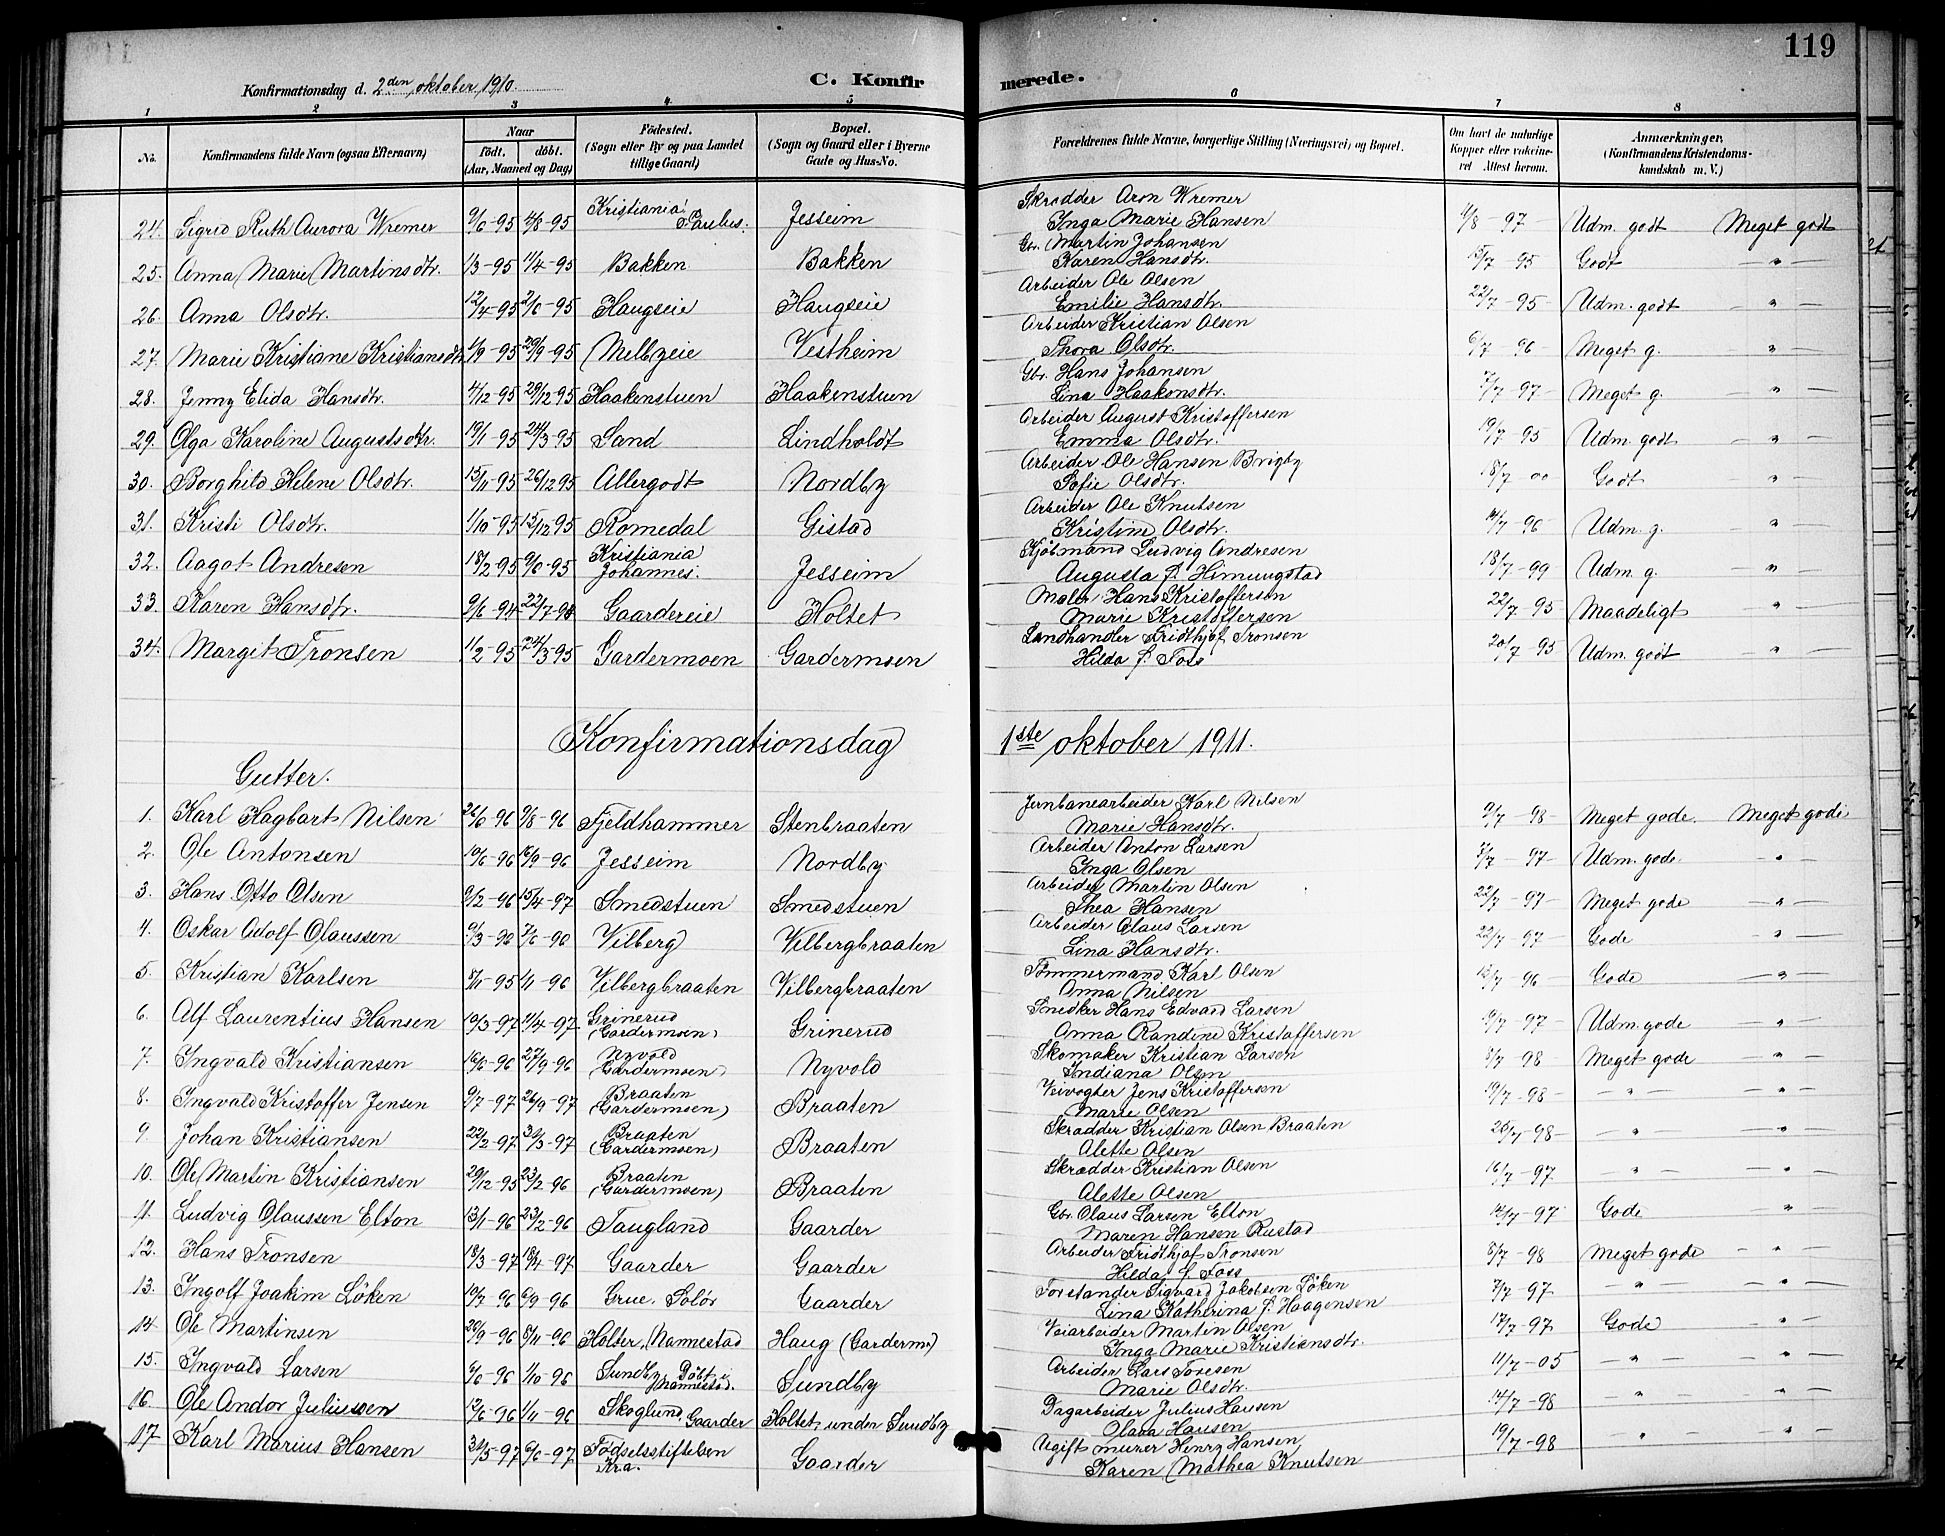 119
Konfirmationsdag d. 2den oktober 1910. C. Konfirmerede.
1 2 3 4 5 6 7 8
No. Konfirmandens fulde Navn (ogsaa Efternavn) Naar födt. döbt. (Aar, Maaned og Dag) Födested. (Sogn eller By og paa Landet tillige Gaard) Bopæl. (Sogn og Gaard eller i Byerne Gade og Hus-No. Forældrenes fulde Navne, borgerlige Stilling (Næringsvei) og Bopæl. Om havt de naturlige Kopper eller vaccineret Attest herom. Anmærkninger, (Konfirmandens Kristendomskundskab m. V.)
24. Sigrid Ruth Aurora Wremer 9/6-95 4/8-95 Kristiania Paulus. Jesseim Skrædder Aron Wremer Inga Marie Hansen 4/8-97 Udm. godt Meget godt
25. Anna Marie Martinsdtr. 1/3-95 11/4-95 Bakken Bakken Gbr. Martin Johansen Karen Hansdtr. 15/7-95 Godt -"-
26. Anna Olsdtr. 12/4-95 2/6-95 Haugseie Haugseie Arbeider Ole Olsen Emilie Hansdtr. 22/7-95 Udm. godt -"-
27. Marie Kristiane Kristiansdtr. 1/9-95 29/9-95 Melbyeie Vestheim Arbeider Kristian Olsen Thora Olsdtr. 6/7-96 Meget g. -"-
28. Jenny Elida Hansdtr. 4/12-95 29/12-95 Haakenstuen Haakenstuen Gbr. Hans Johansen Lina Haakonsdtr. 7/7-97 Meget g. -"-
29. Olga Karoline Augustsdtr. 19/1-95 24/3-95 Sand Lindholdt Arbeider August Kristoffersen Emma Olsdtr. 19/7-95 Udm. godt -"-
30. Borghild Helene Olsdtr. 15/11-95 26/12-95 Allergodt Nordby Arbeider Ole Hansen Brigby Sofie Olsdtr. 18/7-00 Godt -"-
31. Kristi Olsdtr. 1/10-95 15/12-95 Romedal Gistad Arbeider Ole Knutsen Kristine Olsdtr. 14/7-96 Udm. g. -"-
32. Aagot Andresen 18/2-95 9/6-95 Kristiania Johannes. Jesseim Kjöbmand Ludvig Andresen Augusta f. Himungstad 18/7-99 Udm. g. -"-
33. Karen Hansdtr. 9/6-94 22/7-94 Gaardereie Holtet Maler Hans Kristoffersen Marie Kristoffersen 22/7-95 Maadeligt -"-
34. Margit Tronsen 1/2-95 24/3-95 Gardermoen Gardermoen Landhandler Fridthjof Tronsen Hilda f. Foss 20/7-95 Udm. godt -"-
Konfirmationsdag 1ste oktober 1911.
Gutter.
1. Karl Hagbart Nilsen 26/6-96 9/8-96 Fjeldhammer Stenbraaten Jernbanearbeider Karl Nilsen Marie Hansdtr. 9/7-98 Meget gode. Meget gode
2. Ole Antonsen 19/6-96 16/9-96 Jesseim Nordby Arbeider Anton Larsen Inga Olsen 7/7-97 Udm. gode. -"-
3. Hans Otto Olsen 9/12-96 15/4-97 Smedstuen Smedstuen Arbeider Martin Olsen Thea Hansen 22/7-97 Meget gode -"-
4. Oskar Adolf Olaussen 9/3-96 7/6-96 Vilberg Vilbergbraaten Arbeider Olaus Larsen Lina Hansdtr. 22/7-97 Gode -"-
5. Kristian Karlsen 8/11-95 1/1-96 Vilbergbraaten Vilbergbraaten Tömmermand Karl Olsen Anna Nilsen 13/7-96 Gode -"-
6. Alf Laurentius Hansen 10/3-97 11/4-97 Grinerud (Gardermoen) Grinerud Snedker Hans Edvard Larsen Anna Randine Kristoffersen 19/7-97 Udm. gode -"-
7. Ingvald Kristiansen 16/6-96 27/9-96 Nyvold (Gardermoen) Nyvold Skomaker Kristian Larsen Indiana Olsen 8/7-98 Meget gode -"-
8. Ingvald Kristoffer Jensen 9/7-97 26/9-97 Braaten (Gardermoen) Braaten Veivogter Jens Kristoffersen Marie Olsen 19/7-98 -"- -"-
9. Johan Kristiansen 22/2-97 30/3-97 Braaten (Gardermoen) Braaten Skrædder Kristian Olsen Braaten Alette Olsen 20/7-98 -"- -"-
10. Ole Martin Kristiansen 29/12-95 23/2-96 Braaten (Gardermoen) Braaten Skrædder Kristian Olsen Alette Olsen 16/7-97 -"- -"-
11. Ludvig Olaussen Elton 13/1-96 23/2-96 Taugland Gaarder Gbr. Olaus Larsen Elton Maren Hansen Rustad 14/7-97 Gode -"-
12. Hans Tronsen 18/3-97 18/4-97 Gaarder Gaarder Arbeider Fridthjof Tronsen Hilda f. Foss 8/7-98 Meget gode -"-
13. Ingolf Joakim Löken 19/7-96 6/9-96 Grue, Solör Gaarder Forstander Sigvard Jakobsen Löken Lina Katherina f. Haagensen 7/7-97 -"- -"-
14. Ole Martinsen 20/9-96 8/11-96 Holter, Nannestad Haug (Garderm.) Veiarbeider Martin Olsen Inga Marie Kristiansdtr. 17/7-97 Gode -"-
15. Ingvald Larsen 6/6-96 1/10-96 Sundby Döbt i Nannestad. Sundby Arbeider Lars Toresen Marie Olsdtr. 11/7-05 -"- -"-
16. Ole Andor Juliussen 12/6-96 1/11-96 Skoglund, Gaarder Holtet under Sundby Dagarbeider Julius Hansen Olava Hansen 14/7-98 -"- -"-
17 Karl Marius Hansen 31/5-97 6/6-97 Födselsstiftelsen Kra. Gaarder Ugift murer Henry Hansen Karen Mathea Knutsen 19/7-98 -"- -"-